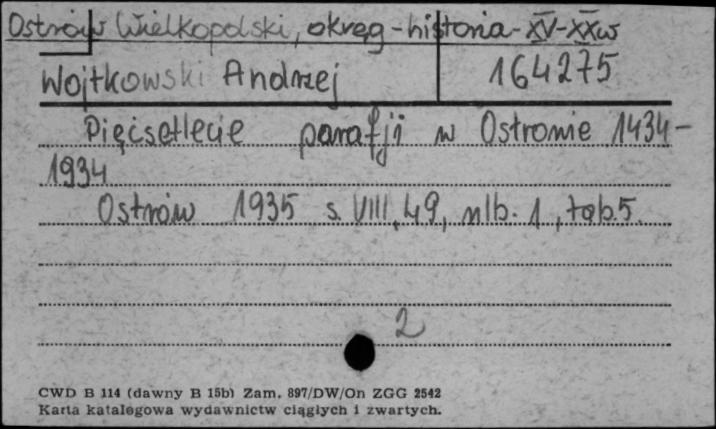 Ostrów Wielkopolski, okręg - historia - XV-XX w
Wojtkowski Andrzej 164275
Pięćsetlecie parafji w Ostrowie 1434-
1934
Ostrów 1935 s. VIII, 49, nlb. 1, tab. 5.
2
CWD B 114 (dawny B 15b) Zam. 897/DW/On ZGG 2542
Karta katalogowa wydawnictw ciągłych i zwartych.